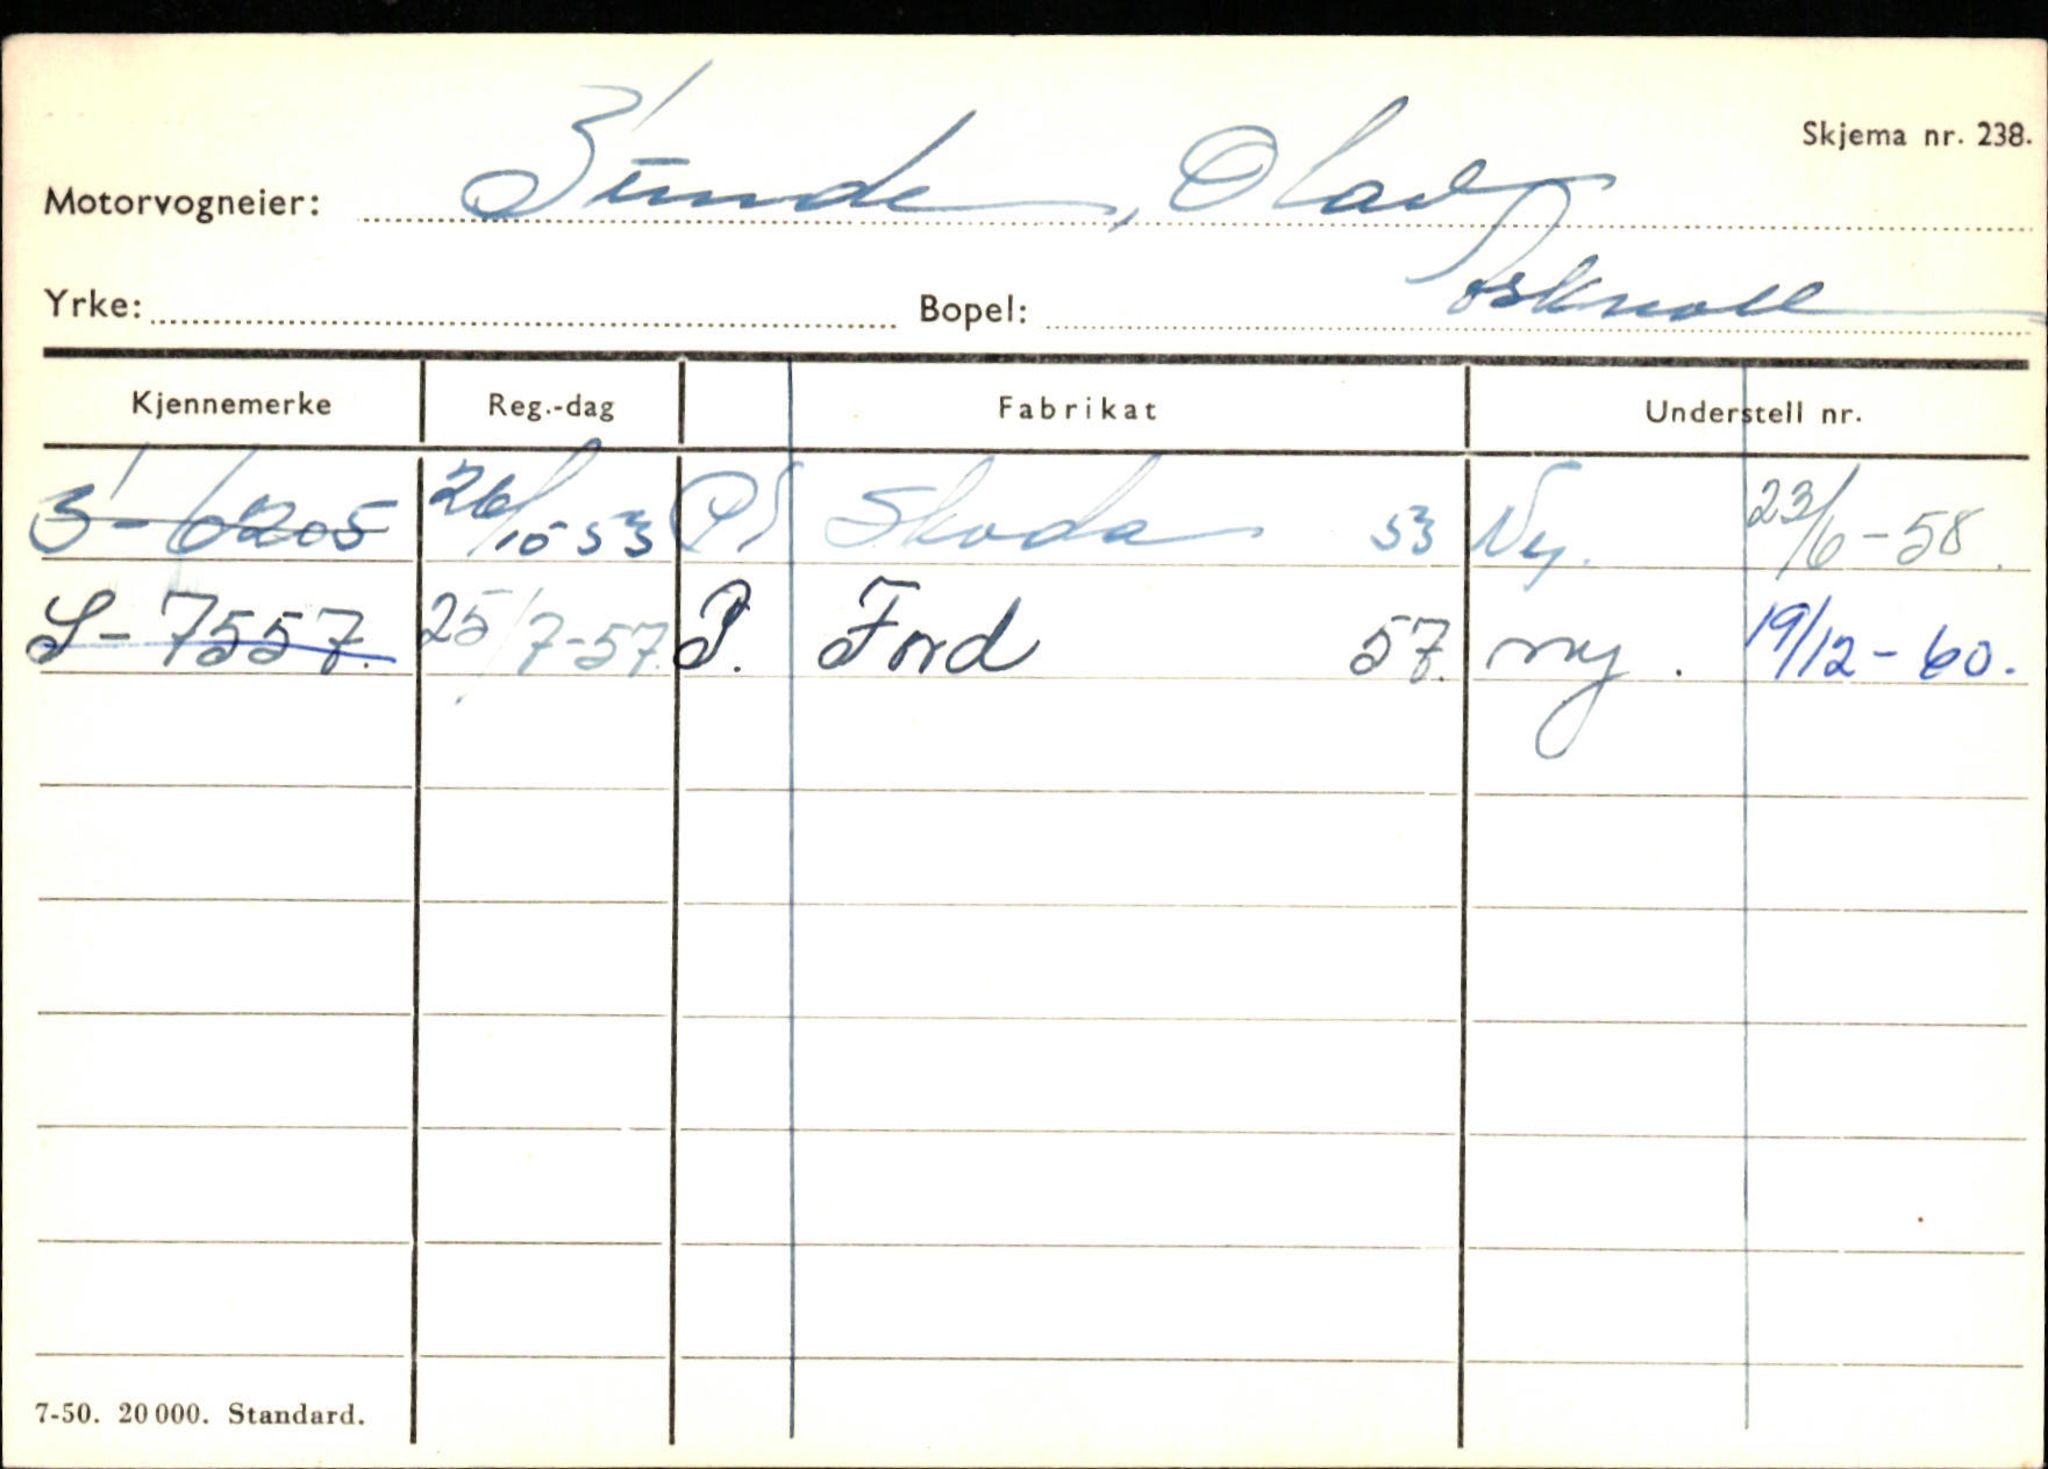 Skjema nr. 238.
Motorvogneier: Sunde, Olav
Yrke: Bopel:
Kjennemerke Reg.-dag Fabrikat Understell nr.
S-6205 26/10 53 P Skoda 53 Ny. 23/6-58.
S-7557. 25/7-57. P. Ford 57. ny. 19/12-60.
7-50. 20 000. Standard.